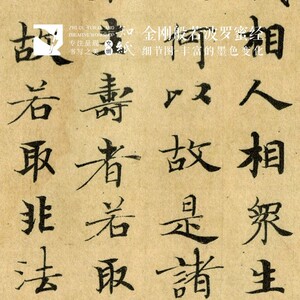 金剛般若波罗蜜经
细节图·丰富的墨色变化
相人相眾生
何以故是諸
壽者若取
故若取非法